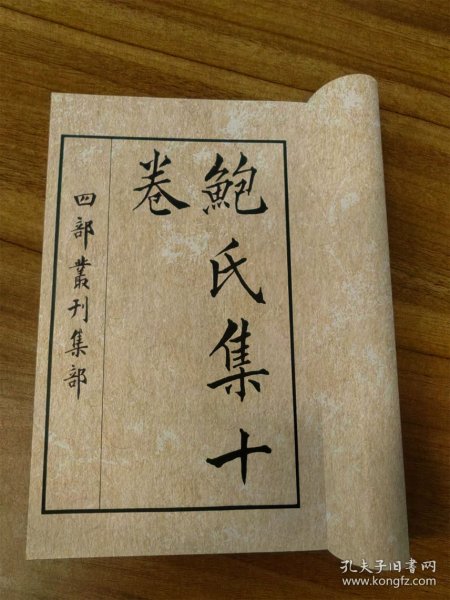 鮑氏集十
卷
四部叢刊集部
孔夫子旧书网
www.kongfz.com